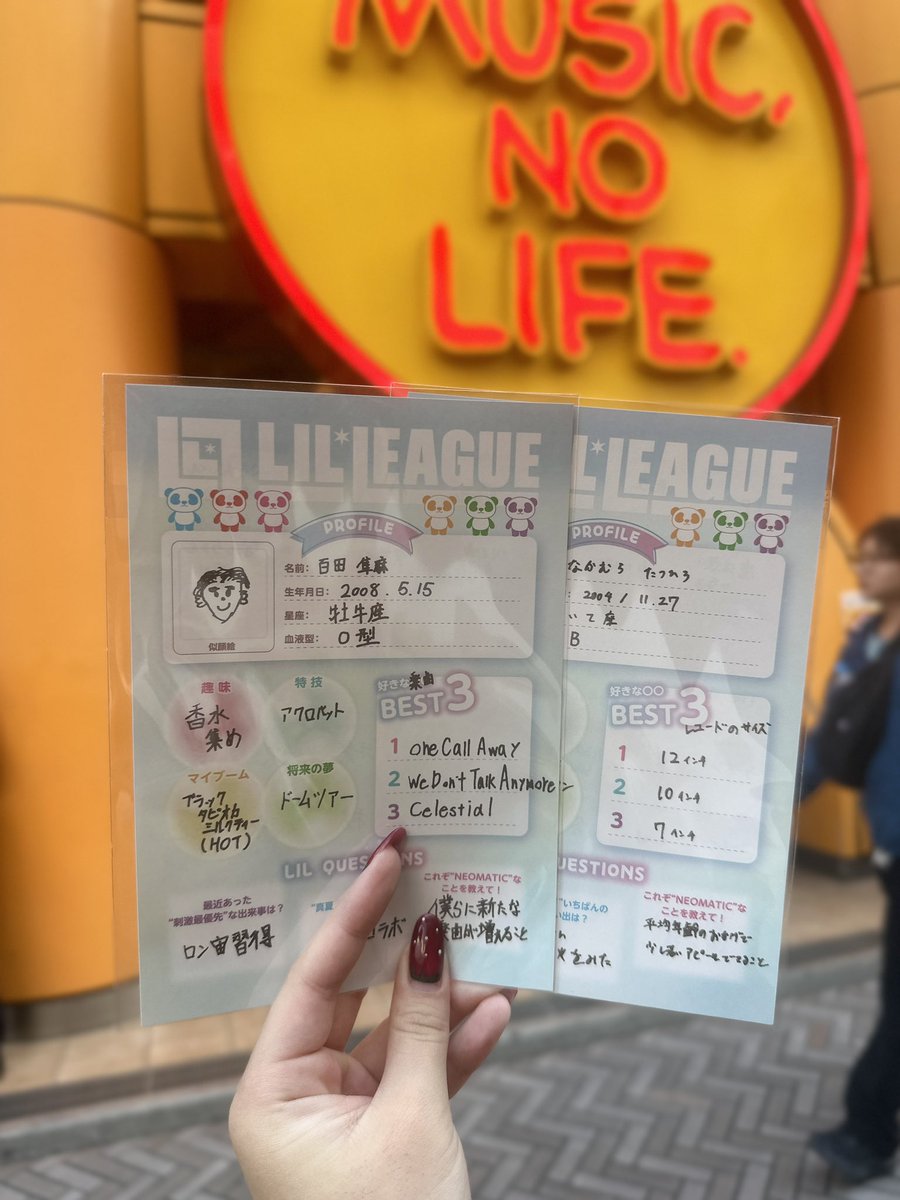 MUSIC,
NO
LIFE.
LIL LEAGUE
PROFILE
名前: 百田 隼麻
生年月日: 2008.5.15
星座: 牡牛座
血液型: O型
似顔絵
趣味
香水
集め
特技
アクロバット
マイブーム
ブラック
タピオカ
ミルクティー
(HOT)
将来の夢
ドームツアー
好きな楽曲
BEST3
1 One Call Away
2 We Don't Talk Anymore
3 Celestial
LIL QUESTIONS
最近あった
"刺激最優先"な出来事は?
ロン宙習得
"真夏
コラボ
これぞ"NEOMATIC"な
ことを教えて!
僕らに新たな
楽曲が増えること
L LEAGUE
PROFILE
なかむら たつろう
: 2004/11.27
いて座
B
好きな〇〇
BEST3
レコードのサイズ
1 12インチ
2 10インチ
3 7インチ
UESTIONS
"いちばんの
い出は?
をみた
これぞ"NEOMATIC"な
ことを教えて!
平均年齢の